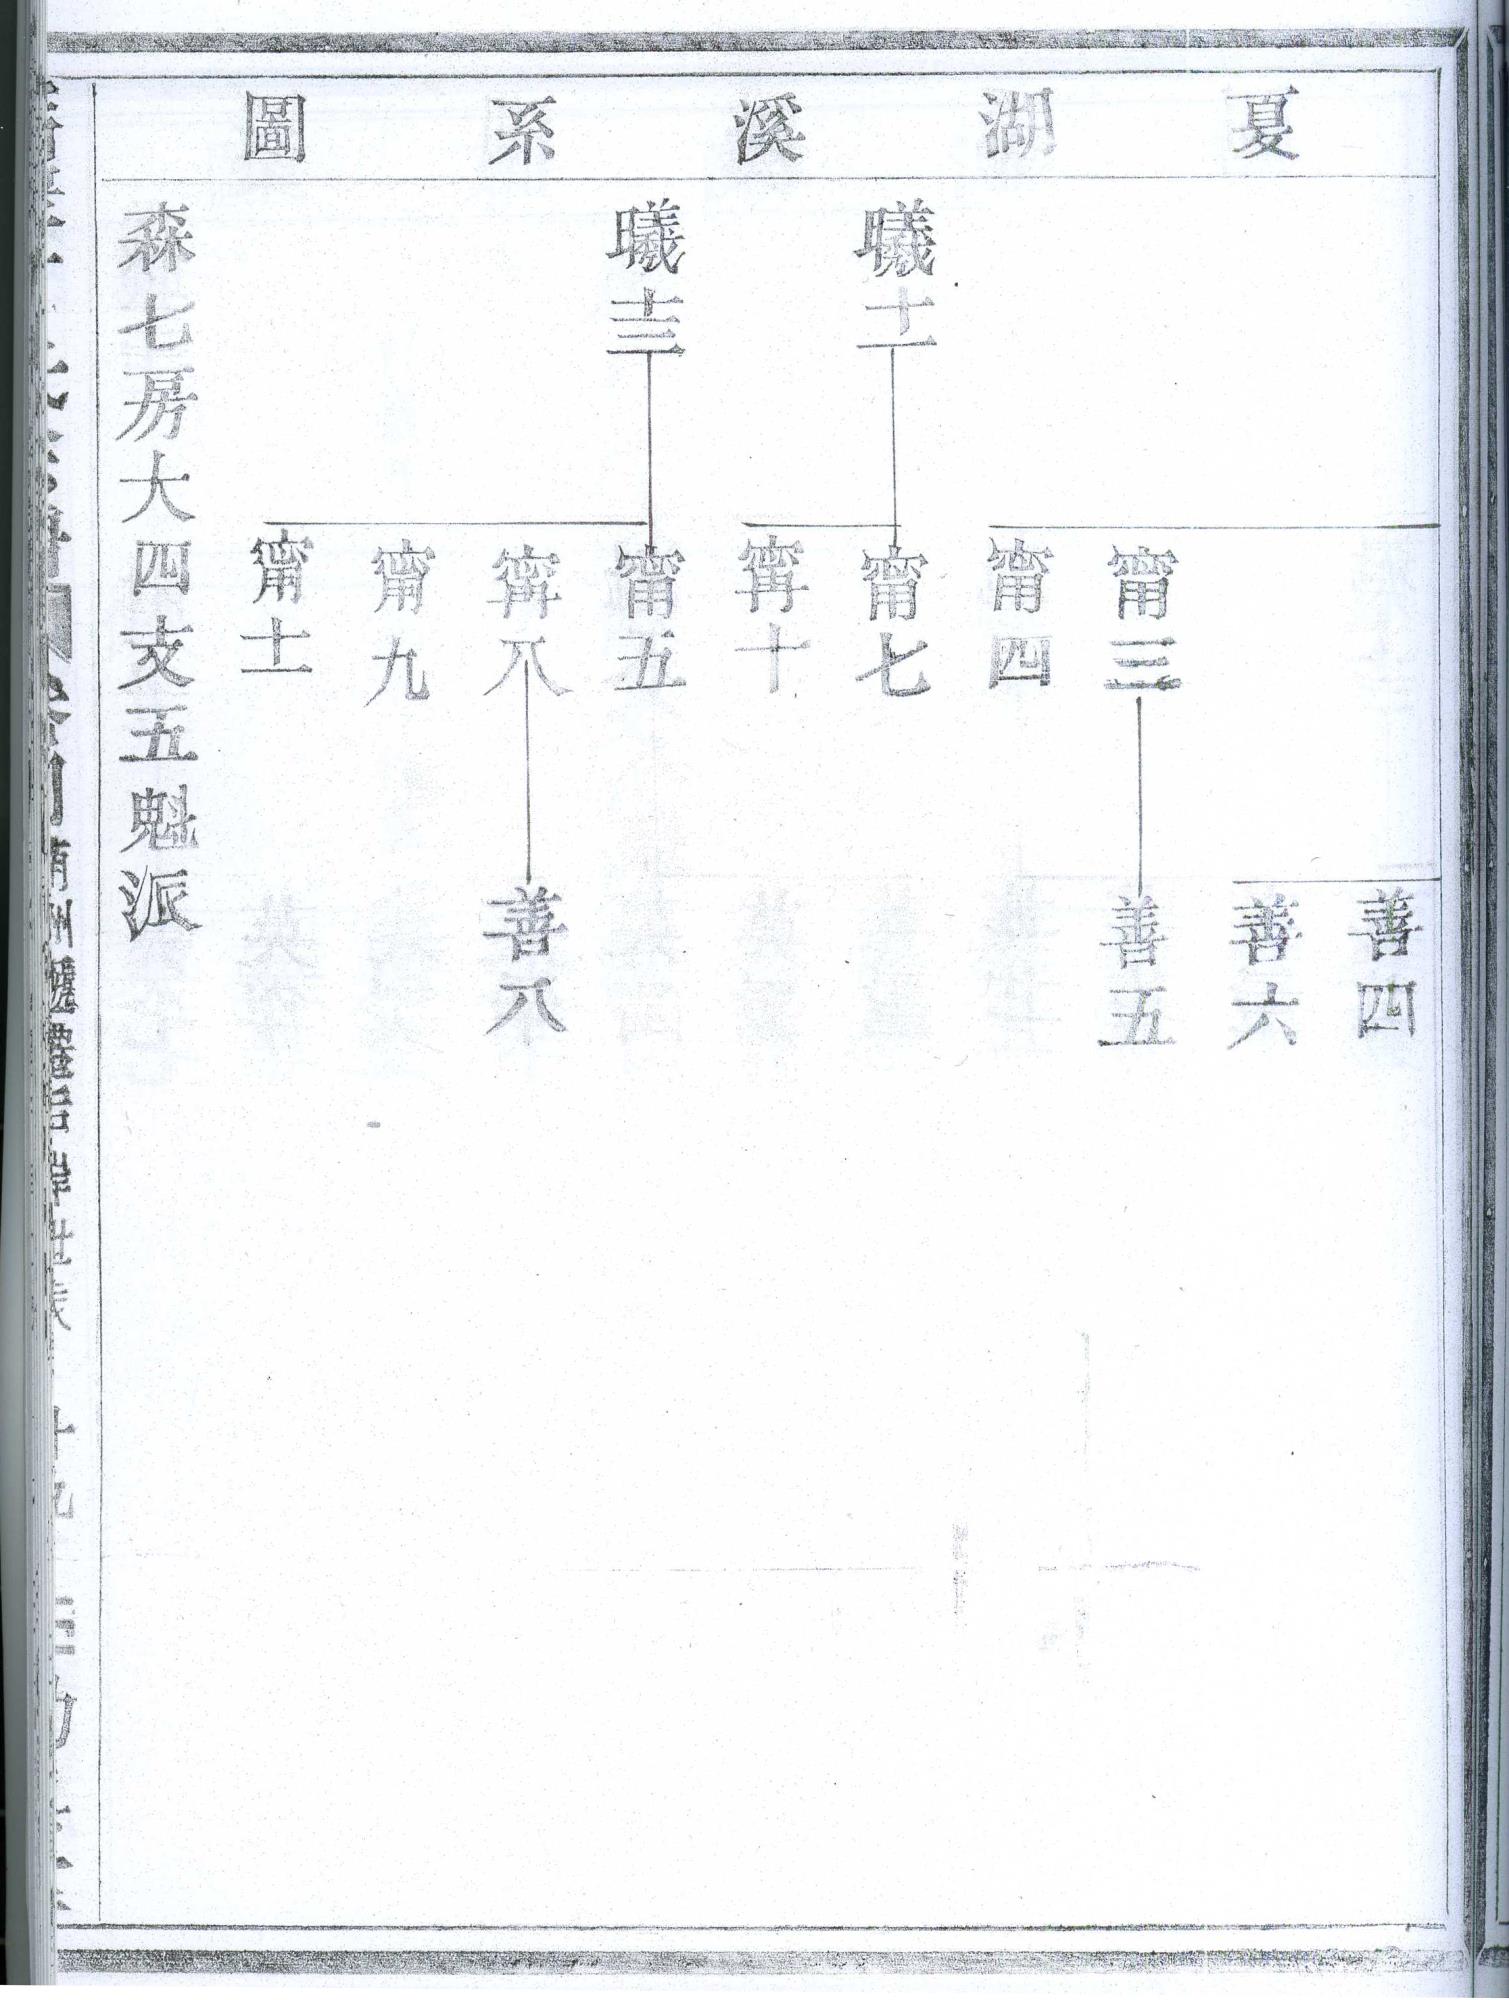 夏湖溪系圖
善四
善六
甯三
善五
甯四
曦十一
甯七
寗十
曦十三
甯五
寗八
善八
甯九
甯十一
森七房大四支五魁派